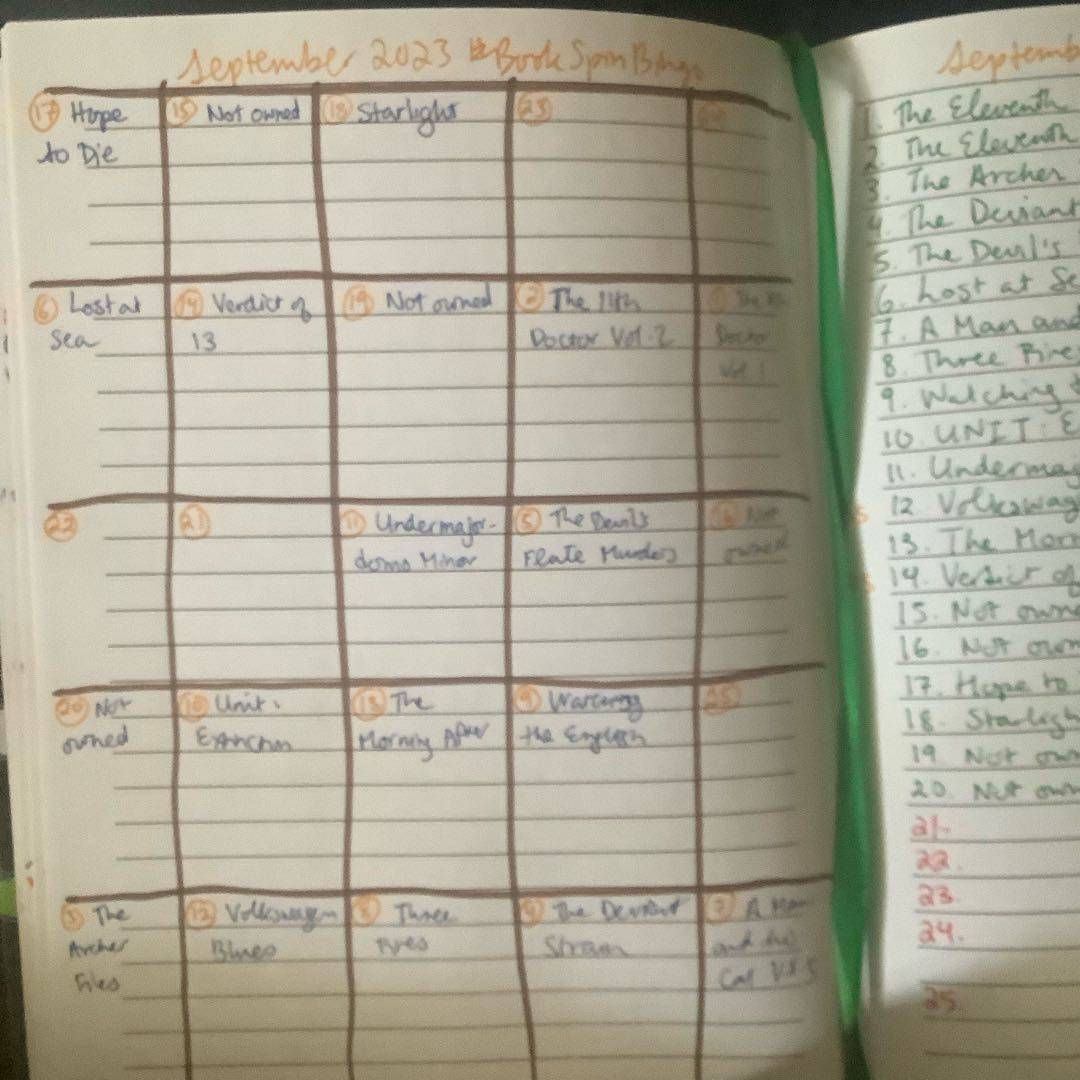 September 2023 #BookSpinBingo
17 Hope to Die
15 Not owned
18 Starlight
23
6 Lost at Sea
14 Verdict of 13
19 Not owned
2 The 11th Doctor Vol. 2
1 The Doctor Vol 1
22
21
11 Undermajor-domo Minor
5 The Devil's Flute Murders
16 Not owned
20 Not owned
10 Unit: Extinction
13 The Morning After
9 Watching the English
25
3 The Archer Files
12 Volkswagen Blues
8 Three Fires
4 The Deviant Strain
7 A Man and his Cat Vol 5
Septemb
1. The Eleventh
2. The Eleventh
3. The Archer
4. The Deviant
5. The Devil's
6. Lost at Se
7. A Man and
8. Three Fires
9. Watching t
10. UNIT: E
11. Undermaj
12 Volkswag
13. The Morn
14. Verdict of
15. Not owne
16. Not own
17. Hope to
18. Starligh
19. Not own
20. Not own
21.
22.
23.
24.
25.